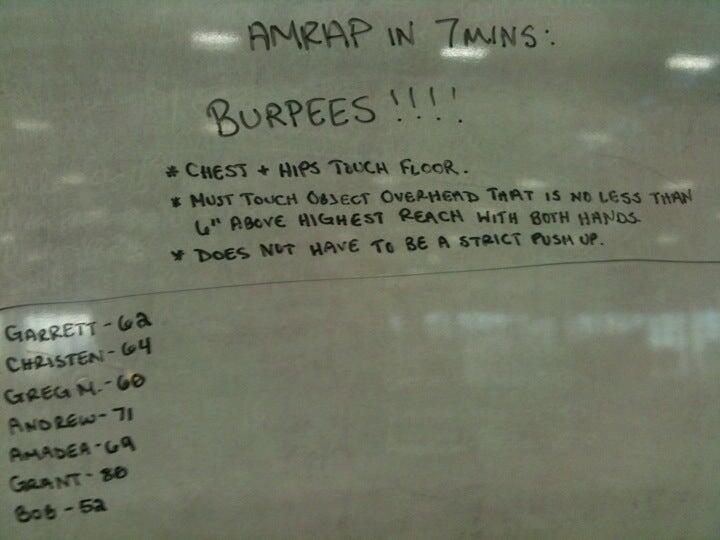 AMRAP IN 7MINS:
BURPEES!!!!
* CHEST + HIPS TOUCH FLOOR.
* MUST TOUCH OBJECT OVERHEAD THAT IS NO LESS THAN
6" ABOVE HIGHEST REACH WITH BOTH HANDS.
* DOES NOT HAVE TO BE A STRICT PUSH UP.
GARRETT - 62
CHRISTEN - 64
GREG M. - 60
ANDREW - 71
AMADEA - 69
GRANT - 80
BOB - 52